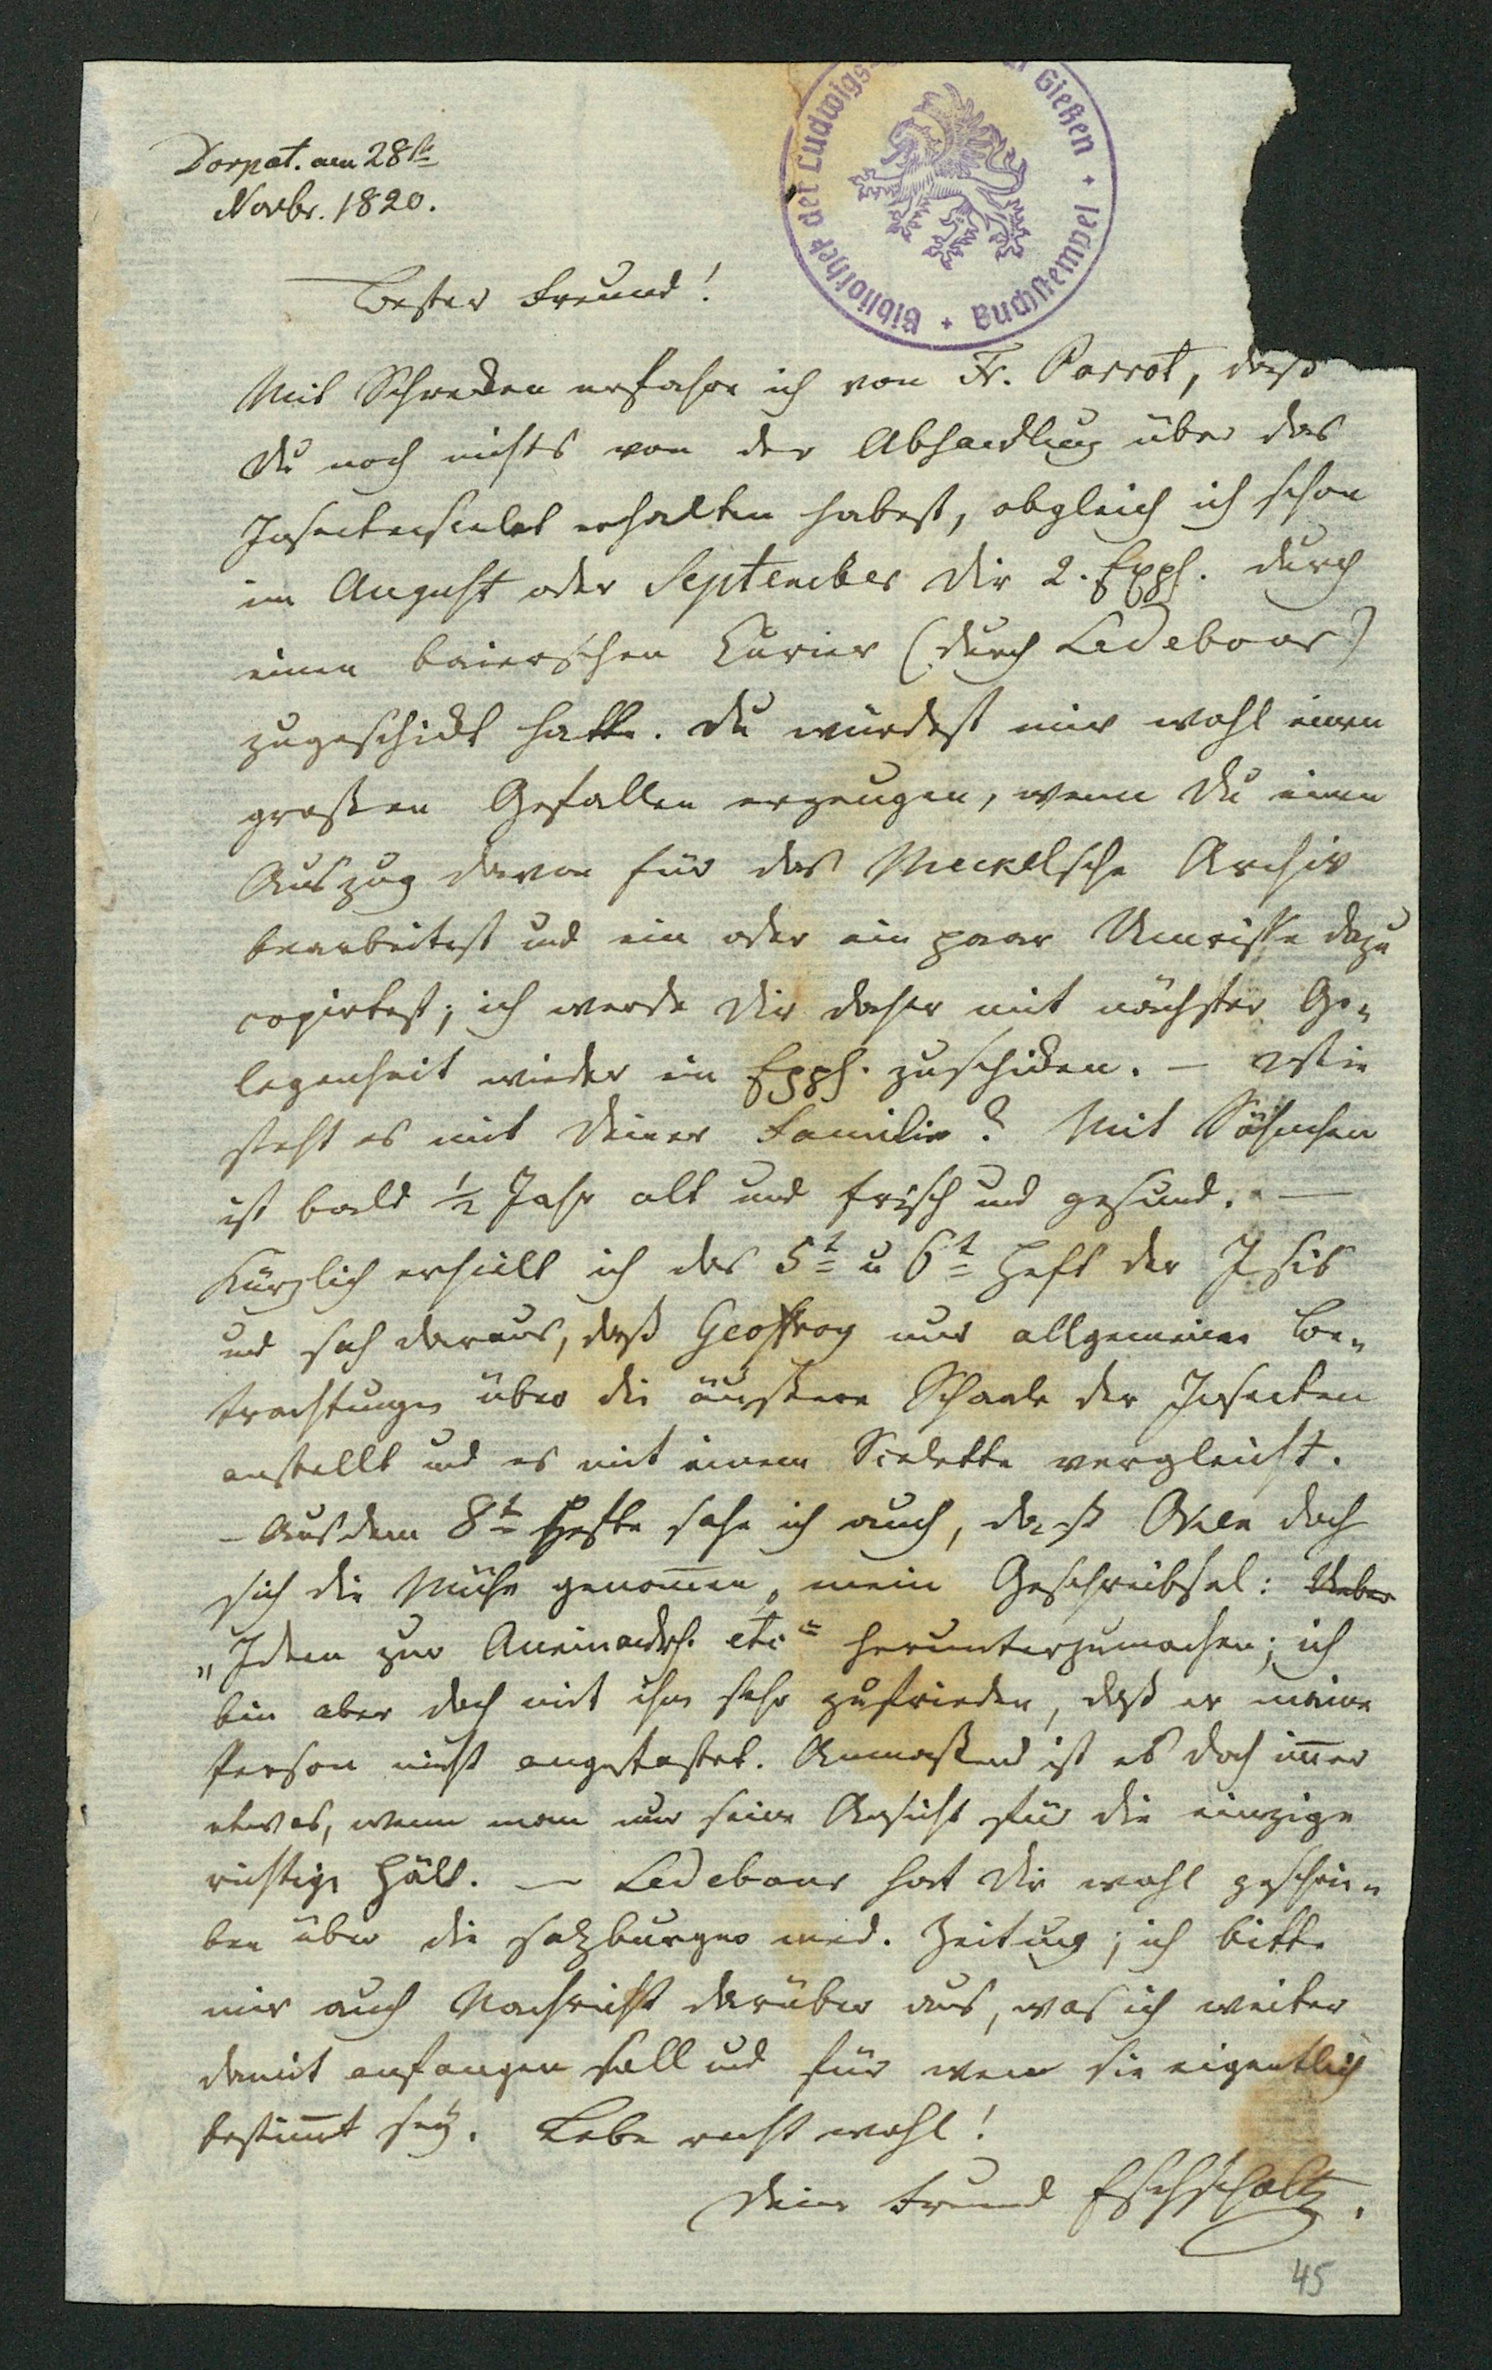 Dorpat. am 28st
Novbr. 1820.
Bibliothek der Ludwigs Gießen + Buchstempel +
Bester Freund!
Mit Schrecken erfahre ich von Fr. Parrot, daß
Du noch nichts von der Abhandlung über das
Insectenscelet erhalten habest, obgleich ich schon
im August oder September Dir 2. Expl. durch
einen baierschen Curier (durch Ledebour)
zugeschickt hatte. Du würdest mir wohl einen
großen Gefallen erzeugen, wenn Du einen
Auszug davon für das Meckelsche Archiv
bearbeitest und ein oder ein paar Umrisse dazu
copirtest; ich werde Dir daher mit nächster Ge-
legenheit wieder ein Expl. zuschicken. – Wie
steht es mit Deiner Familie? Mit Söhnchen
ist bald 1/2 Jahr alt und frisch und gesund. —
Kürzlich erhielt ich das 5t u 6t Heft der Isis
und sah daraus, daß Geoffroy nur allgemeine Be-
trachtungen über die äußere Schaale der Insecten
anstellt und es mit einem Scelette vergleicht.
– Aus dem 8t Hefte sahe ich auch, daß Oken doch
sich die Mühe genommen, mein Geschreibsel: Ueber
„Ideen zur Aneinanderh. etc“ herunterzumachen; ich
bin aber doch mit ihm sehr zufrieden, daß er meine
Person nicht angetastet. Anmaßend ist es doch imer
etwas, wenn man nur seine Ansicht für die einzige
richtige hält. — Ledebour hat Dir wohl geschrie-
ben über die salzburger med. Zeitung; ich bitte
mir auch Nachricht darüber aus, was ich weiter
damit anfangen soll und für wem sie eigentlich
bestimt sey. Lebe recht wohl!
Dein Freund Eschscholtz.
45